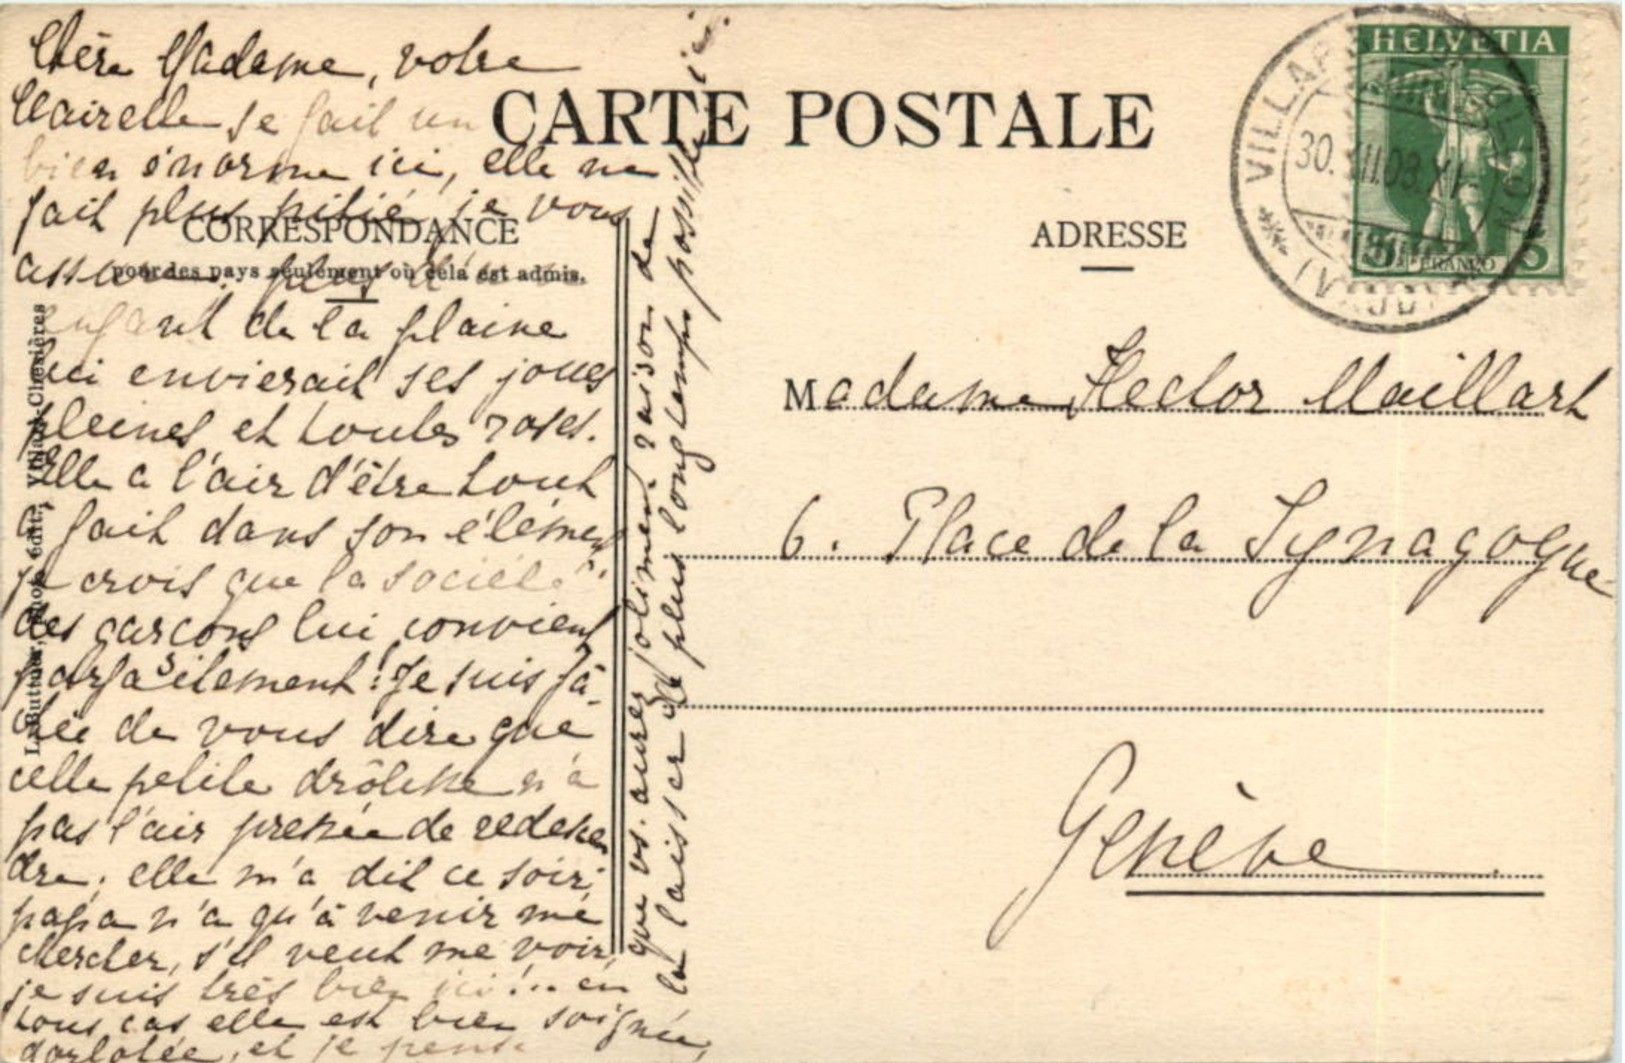 Chère Madame, votre
Clairelle se fait un
bien énorme ici, elle ne
fait plus pitié, je vous
assure. plus d'un
enfant de la plaine
lui envierait ses joues
pleines et toutes roses.
Elle a l'air d'être tout
à fait dans son élément
je crois que la société
des garçons lui convient
parfaitement! Je suis fâ-
chée de vous dire que
cette petite drôlesse n'a
pas l'air pressée de redescen
dre; elle m'a dit ce soir:
papa n'a qu'à venir me
chercher, s'il veut me voir,
je suis très bien ici!.. en
tous cas elle est bien soignée,
dorlotée, et je pense
que vs. aurez joliment raison de
la laisser le plus longtemps possible ici.
CARTE POSTALE
CORRESPONDANCE
pour des pays seulement où cela est admis.
ADRESSE
édit., Villars-Chesières
HELVETIA
5 FRANCO 5
VILLARS OLLON
30. VII.08.XI
(VAUD)
Madame Hector Maillart
6. Place de la Synagogue
Genève